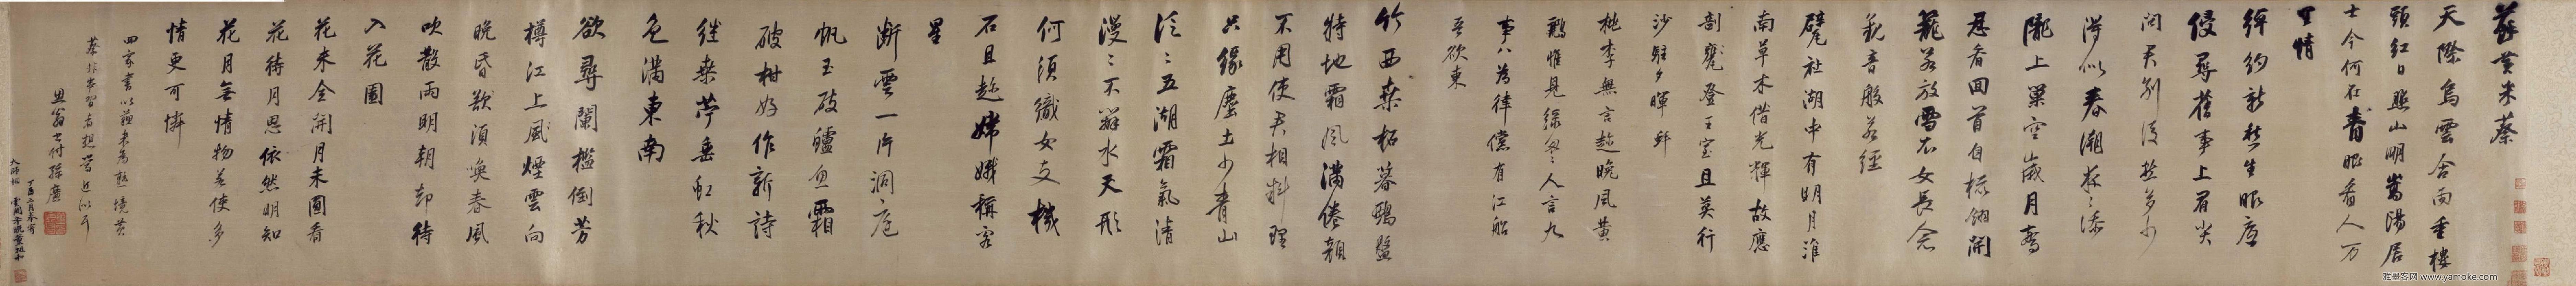 蘇黃米蔡
天際烏雲含雨重樓
頭紅日照山明嵩陽居
士今何在青眼看人万
里情
綽約新嬌生眼底
侵尋舊事上眉尖
問君別後愁多少
得似春潮夜夜添
隴上巢空歲月驚
忍看回首自梳翎開
籠若放雪衣女長念
觀音般若經
甓社湖中有明月淮
南草木借光輝故應
剖蚌登王室且莫行
沙弄夕暉
桃李無言
晚風黃
鸝惟見綠人言九
事八為律儻有江船
吾欲東
竹西桑柘暮鴉盤
特地霜風滿倦顏
不用使君相料理
只緣塵土少青山
泛泛五湖霜氣清
漫漫不辨水天形
何須織女支機
石且趁嫦娥稱客
星
斷雲一片洞庭
帆玉破鱸魚霜
破柑好作新詩
繼桑苧垂虹秋
色滿東南
欲尋闌檻倒芳
樽江上風煙雲向
晚昏欲須喚春風
吹散雨明朝却待
入花園
花來全開月未圓看
花待月思依然明知
花月無情物若使多
情更可憐
四家書以蘇米為熟境黃
蔡非本習
思翁
雅墨客网 www.yamoke.com